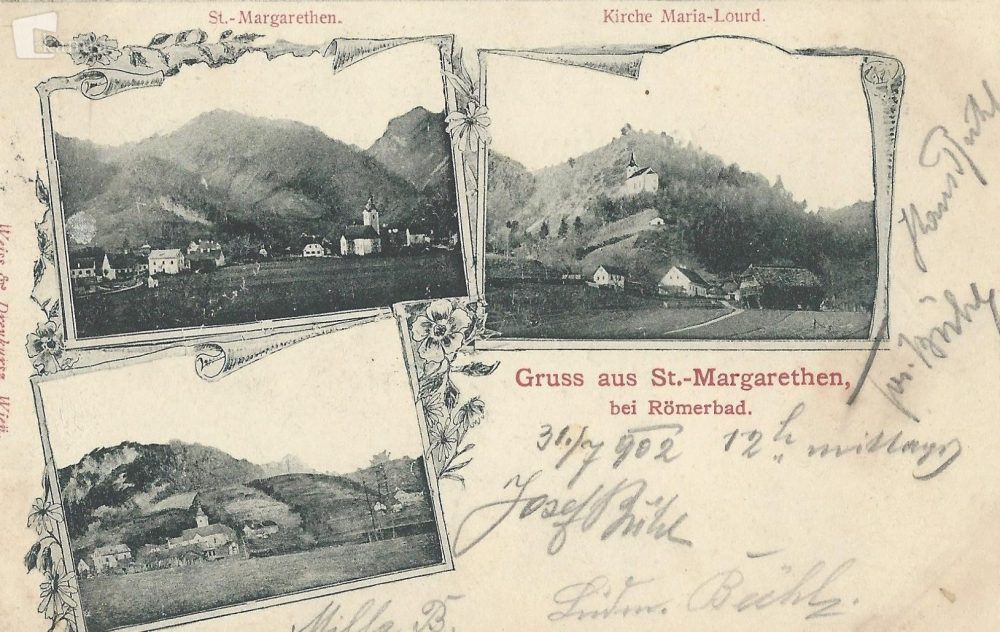 St.-Margarethen.
Kirche Maria-Lourd.
Gruss aus St.-Margarethen,
bei Römerbad.
31./7 902 12h mittags
Josef Bühl
Milla B.
Ludm. Bühl.
Hans Bühl
Weiss & Dreykurss, Wien.